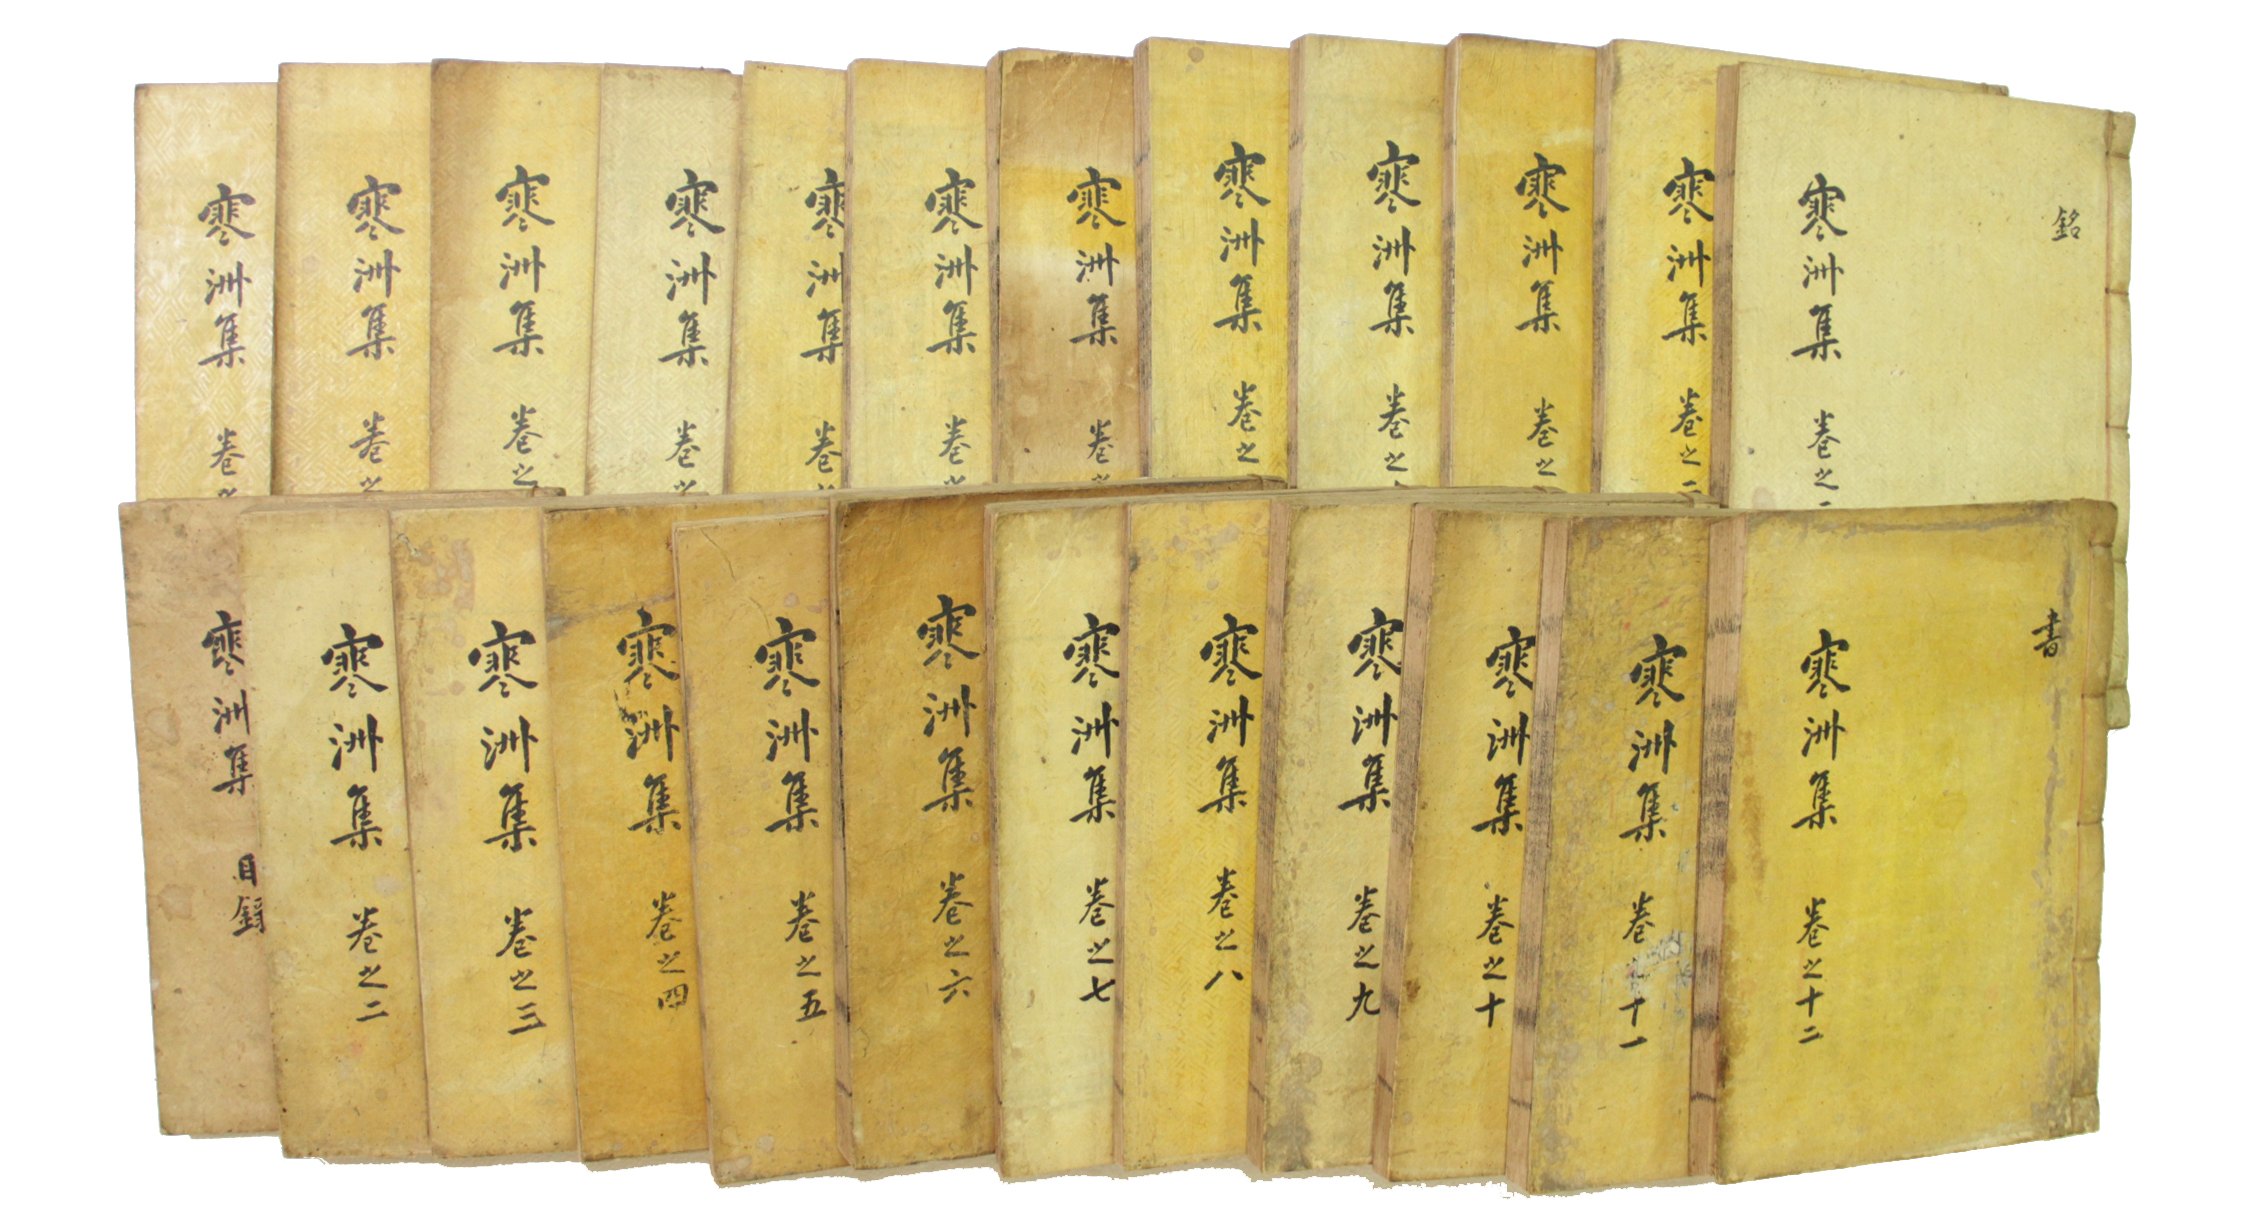 寒洲集 卷之
寒洲集 卷之
寒洲集 卷之
寒洲集 卷之
寒洲集 卷之
寒洲集 卷之
寒洲集 卷之
寒洲集 卷之
寒洲集 卷之
寒洲集 卷之
寒洲集 卷之二
寒洲集 卷之二
銘
寒洲集 目錄
寒洲集 卷之二
寒洲集 卷之三
寒洲集 卷之四
寒洲集 卷之五
寒洲集 卷之六
寒洲集 卷之七
寒洲集 卷之八
寒洲集 卷之九
寒洲集 卷之十
寒洲集 卷之十一
寒洲集 卷之十二
書